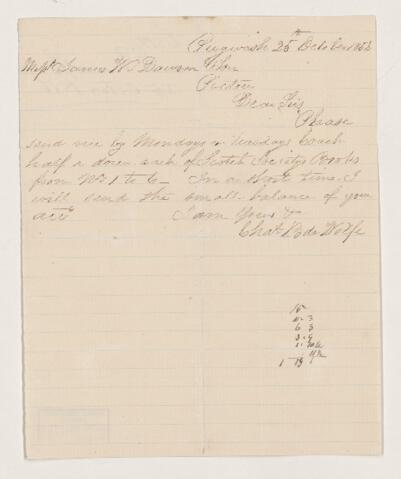 Pugwash 25th October 1853
James W. Dawson
Pictou
Dear Sir,
Please
send me by Mondays or Tuesdays Coach
half a dozen each of Scotch Society's Books
from No. 1 to 6 – In a short time I
will send the small balance of your
acct I am Yours &
Chas. R. de Wolfe
6 3